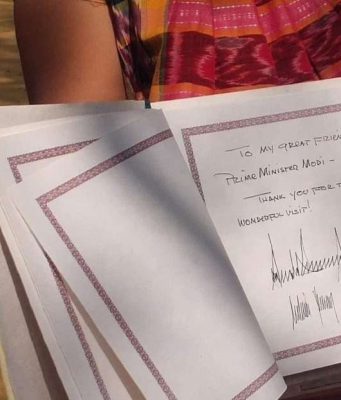 TO MY GREAT FRIEN
PRIME MINISTER MODI -
THANK YOU FOR T
WONDERFUL VISIT!